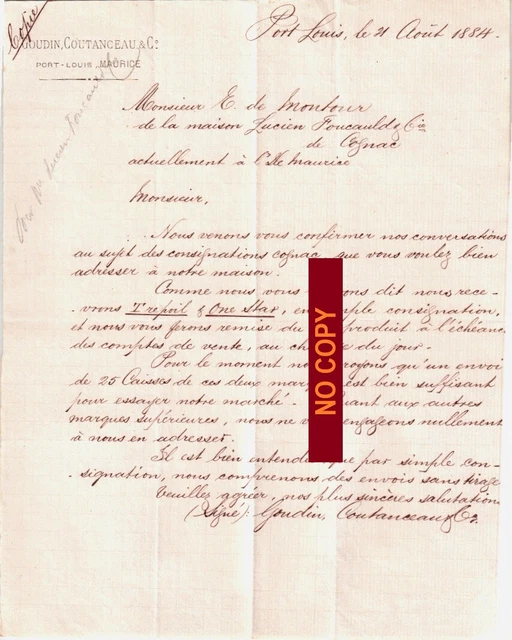 Copie
GOUDIN, COUTANCEAU & Cº
PORT-LOUIS, MAURICE
Port Louis, le 21 Août 1884.
Monsieur E. de Montour
de la maison Lucien Foucauld & Cie
de Cognac
actuellement à l'Ile Maurice
Monsieur,
Nous venons vous confirmer nos conversations
au sujet des consignations cognac que vous voulez bien
adresser à notre maison.
Comme nous vous ons dit nous rece-
-vrons Trefoil & One Star, en simple consignation,
et nous vous ferons remise du produit à l'échéance
des comptes de vente, au ch e du jour.
Pour le moment no royons qu'un envoi
de 25 Caisses de ces deux mar est bien suffisant
pour essayer notre marché. Quant aux autres
marques supérieures, nous ne v engageons nullement
à nous en adresser.
Il est bien entendu que par simple con-
-signation, nous comprenons des envois sans tirage
Veuillez agréer, nos plus sincères salutations
(Signé): Goudin, Coutanceau & Co.
NO COPY